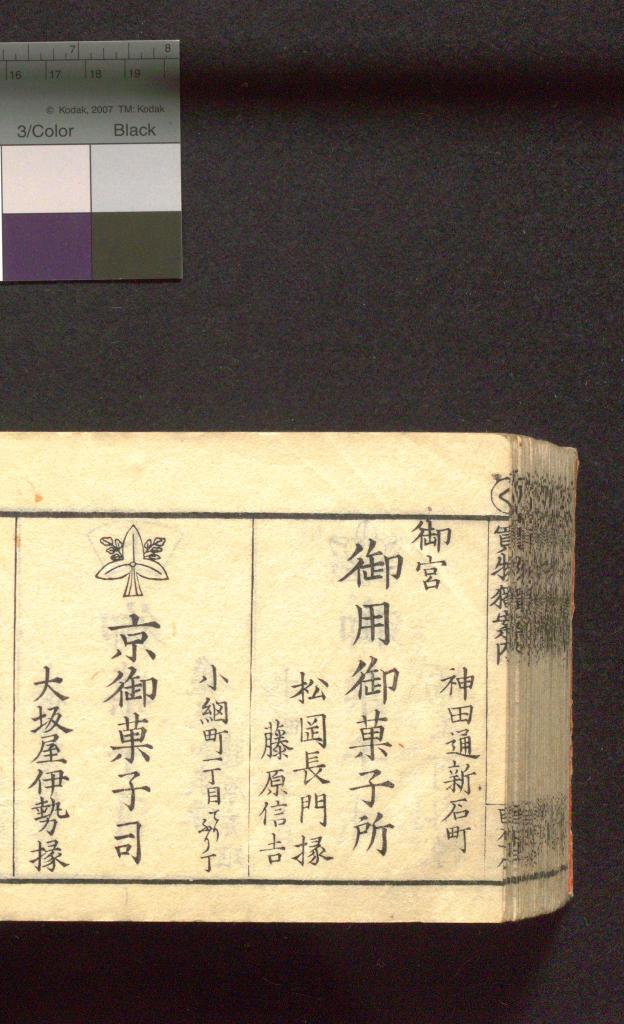 7 8
16 17 18 19
© Kodak, 2007 TM: Kodak
3/Color Black
く
買物獨案内
神田通新石町
御宮
御用御菓子所
松岡長門掾
藤原信吉
小網町一丁目てりふり丁
京御菓子司
大坂屋伊勢掾